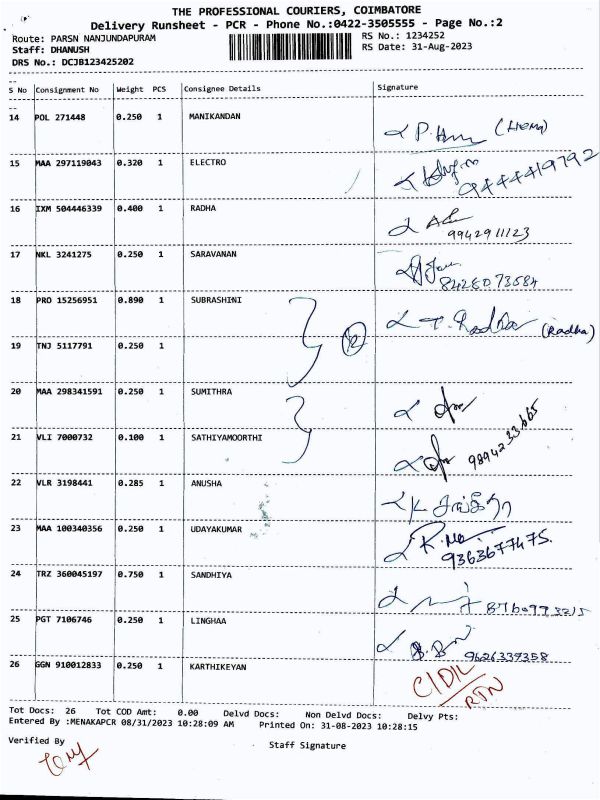 THE PROFESSIONAL COURIERS, COIMBATORE
Delivery Runsheet - PCR - Phone No.:0422-3505555 - Page No.:2
Route: PARSN NANJUNDAPURAM RS No.: 1234252
Staff: DHANUSH RS Date: 31-Aug-2023
DRS No.: DCJB123425202
S No Consignment No Weight PCS Consignee Details Signature
14 POL 271448 0.250 1 MANIKANDAN (Hema)
15 MAA 297119043 0.320 1 ELECTRO 9444419792
16 IXM 504446339 0.400 1 RADHA 9942911123
17 NKL 3241275 0.250 1 SARAVANAN 8428073584
18 PRO 15256951 0.890 1 SUBRASHINI T. Radha (Radha)
19 TNJ 5117791 0.250 1
20 MAA 298341591 0.250 1 SUMITHRA
21 VLI 7000732 0.100 1 SATHIYAMOORTHI 9894233665
22 VLR 3198441 0.285 1 ANUSHA
23 MAA 100340356 0.250 1 UDAYAKUMAR 9363677475.
24 TRZ 360045197 0.750 1 SANDHIYA 8760773215
25 PGT 7106746 0.250 1 LINGHAA 9626339358
26 GGN 910012833 0.250 1 KARTHIKEYAN
RTN
Tot Docs: 26 Tot COD Amt: 0.00 Delvd Docs: Non Delvd Docs: Delvy Pts:
Entered By :MENAKAPCR 08/31/2023 10:28:09 AM Printed On: 31-08-2023 10:28:15
Verified By Staff Signature